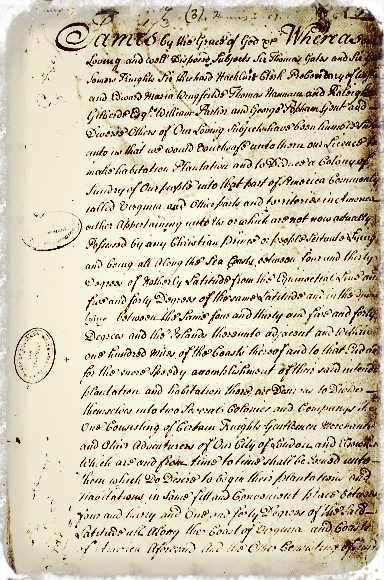 (3)
James by the Grace of God &c Whereas our
Loving and well Disposed Subjects Sir Thomas Gates and Sir George
Somers Knights Sir Richard Hackluit Clerk Prebendary of
and Edward Maria Wingfield Thomas Hannam and Raleigh
Gilberde Esqrs William Parker and George Popham Gent and
Diverse Others of Our Loving Subjects have been humble
unto us that we would vouchsafe unto them our Licence to
make habitation Plantation and to Deduce a Colony of
Sundry of Our people unto that part of America Commonly
called Virginia and Other parts and territories in America
either Appertaining unto Us or which are not now actually
Possessed by any Christian prince or people Scituate Lying
and being all Along the Sea Coasts between four and thirty
Degrees of Northerly Latitude from the Equinoctial Line and
five and forty Degrees of the same Latitude and in the
lying between the same four and thirty and five and forty
Degrees and the Islands thereunto adjacent and within
one hundred Miles of the Coasts thereof and to that End
for the more Speedy accomplishment of their said intended
plantation and habitation there are Desirous to Divide
themselves into two Several Colonies and Companys the
One Consisting of Certain Knights Gentlemen Merchants
and Other Adventurers of Our City of London and
Which are and from time to time shall be Joined unto
Them which Do Desire to begin their plantations and
habitations in Some fitt and Convenient place between
four and thirty and One and forty Degrees of the Said
Latitude all Along the Coast of Virginia and Coasts
of America Aforesaid and the Other Consisting of